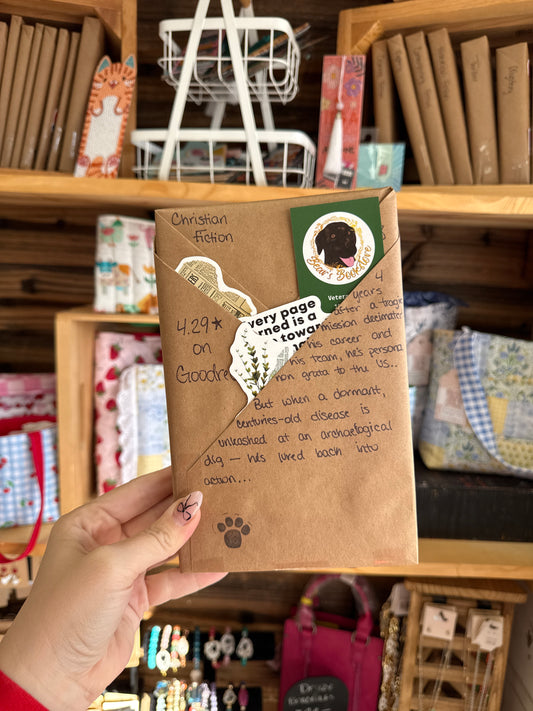 Christian
Fiction
Bear's Bookstore
Veter
4
years
4.29★
on
Goodre
after a trag
mission decimate
his career and
his team, he's persona
non grata to the US..
very page
rned is a
towar
But when a dormant,
centuries-old disease is
unleashed at an archaelogical
dig — he's lured back into
action...